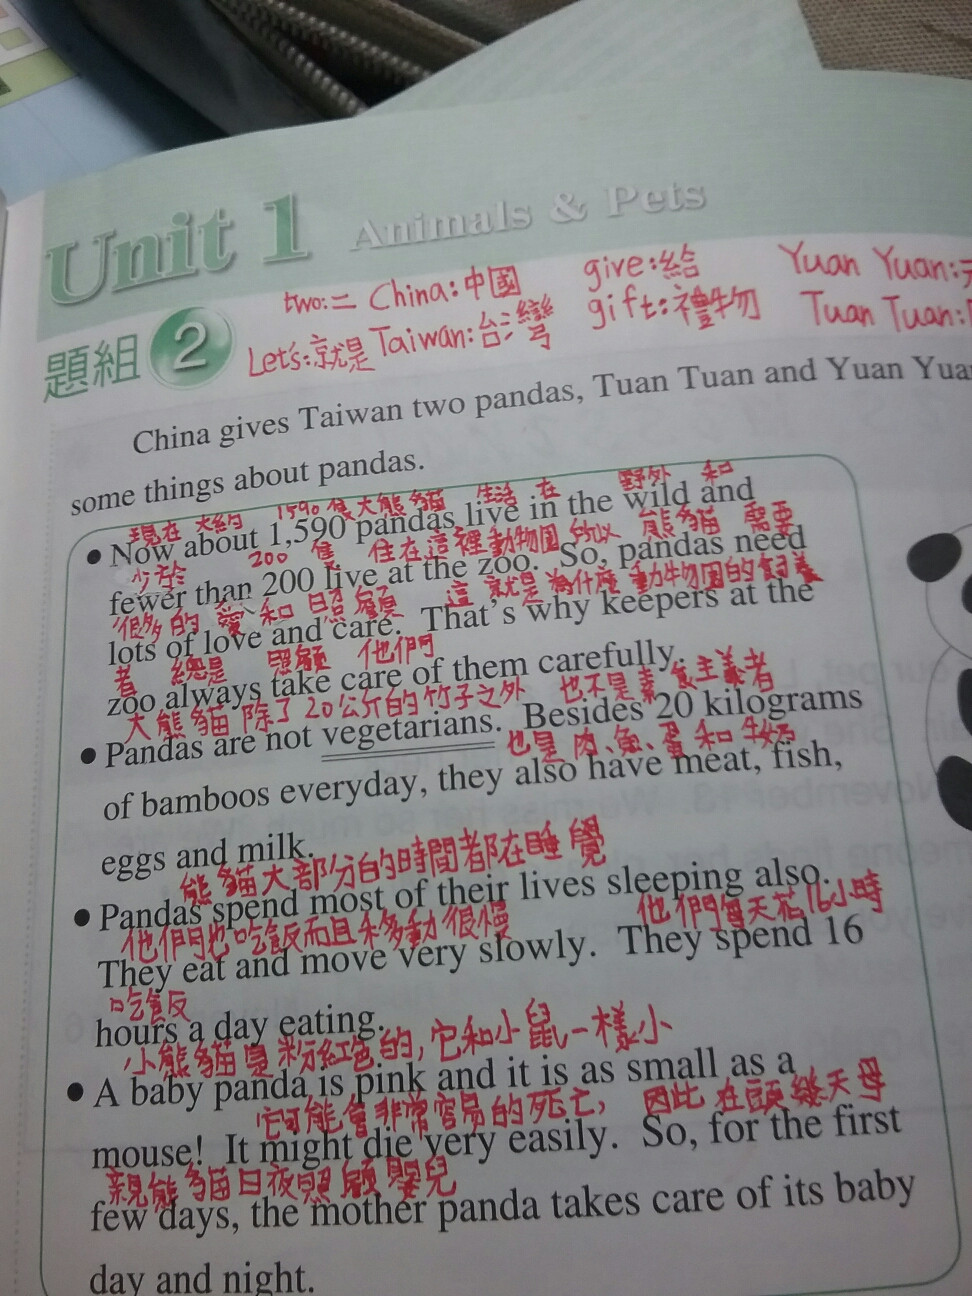 Unit 1 Animals & Pets
two:二 China:中國 give:給 Yuan Yuan:
題組 2 Let's:就是 Taiwan:台灣 gift:禮物 Tuan Tuan:
China gives Taiwan two pandas, Tuan Tuan and Yuan
some things about pandas.
現在 大約 1590 隻大熊貓 生活 在 野外 和
• Now about 1,590 pandas live in the wild and
少於 200 隻 住在這裡動物園 所以 熊貓 需要
fewer than 200 live at the zoo. So, pandas need
很多的 愛 和 照顧 這 就是 為什麼 動物園的飼養
lots of love and care. That's why keepers at the
者 總是 照顧 他們
zoo always take care of them carefully.
大熊貓 除了 20公斤的竹子之外 也不是素食主義者
• Pandas are not vegetarians. Besides 20 kilograms
也是 肉、魚、蛋 和 牛奶
of bamboos everyday, they also have meat, fish,
eggs and milk.
熊貓大部分的時間都在睡覺
• Pandas spend most of their lives sleeping also.
他們也吃飯而且移動很慢 他們每天花16小時
They eat and move very slowly. They spend 16
吃飯
hours a day eating.
小熊貓是粉紅色的,它和小鼠一樣小
• A baby panda is pink and it is as small as a
它可能會非常容易的死亡, 因此 在頭幾天母
mouse! It might die very easily. So, for the first
親熊貓日夜照顧嬰兒
few days, the mother panda takes care of its baby
day and night.